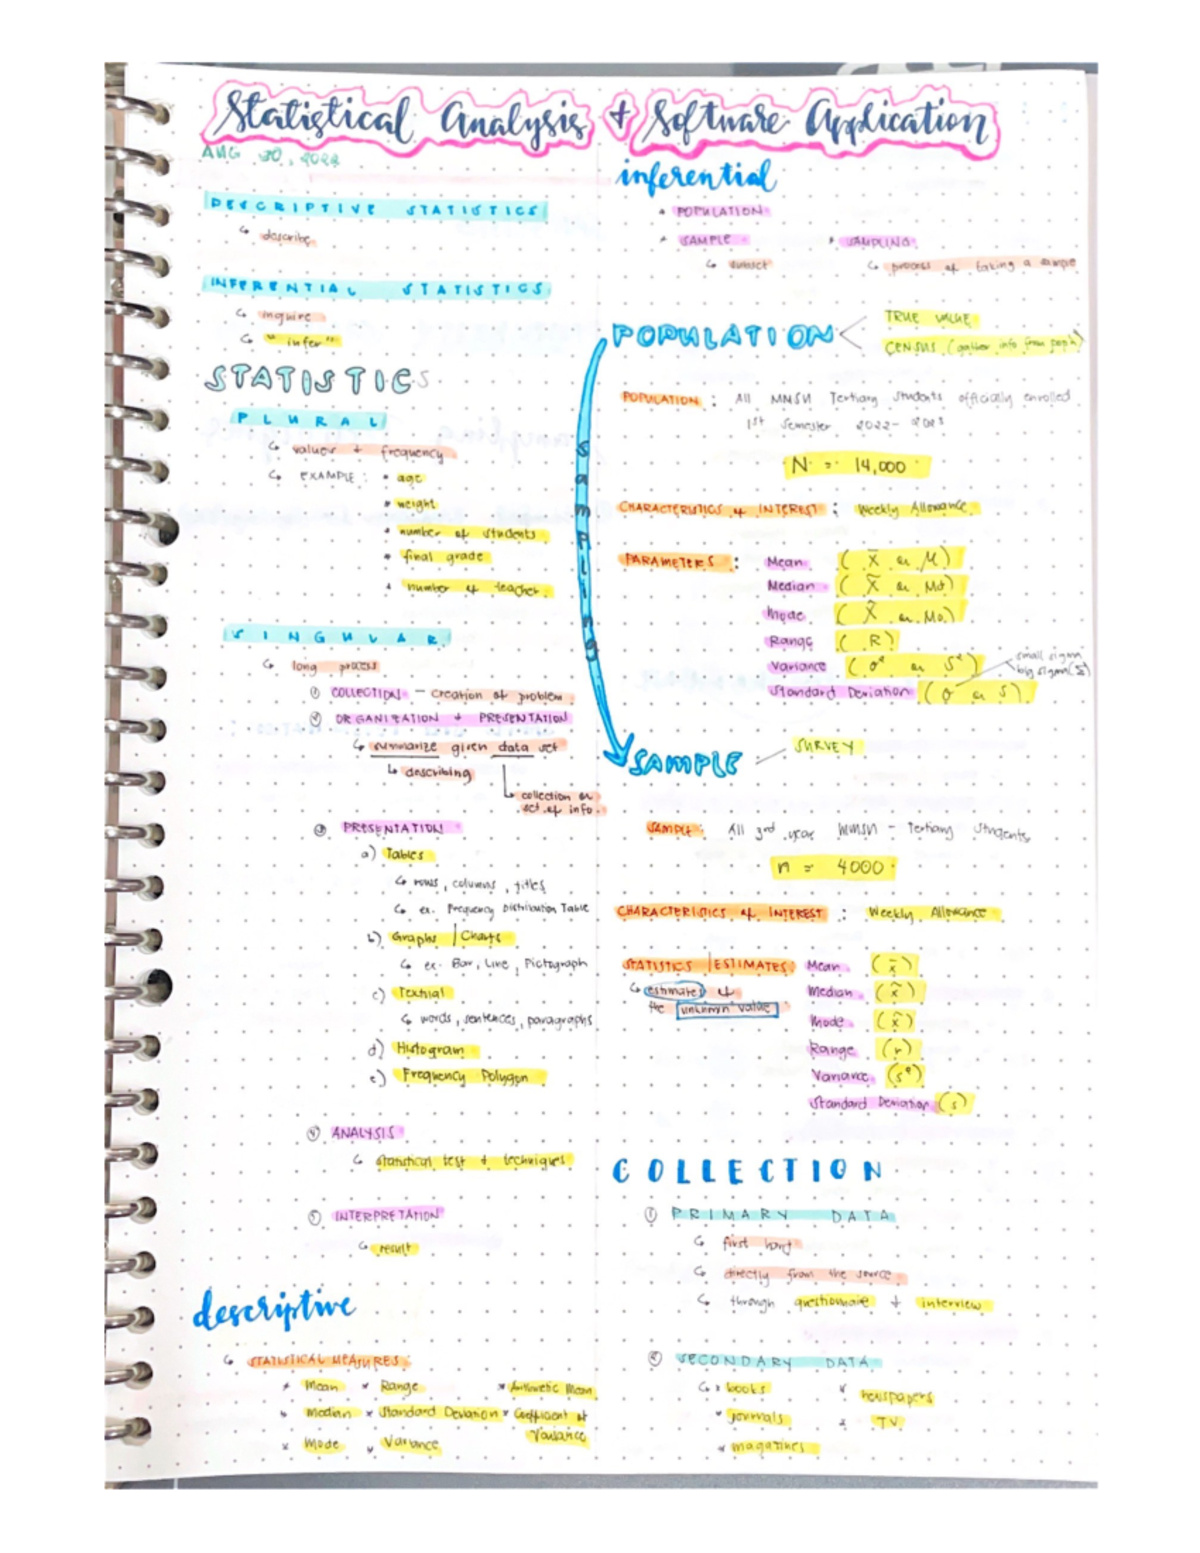 Statistical Analysis + Software Application
AUG 30, 2022
DESCRIPTIVE STATISTICS
↳ describe
INFERENTIAL STATISTICS
↳ inquire
↳ "infer"
STATISTICS
PLURAL
↳ values + frequency
↳ EXAMPLE: • age
• weight
• number of students
• final grade
• number of teacher
SINGULAR
↳ long process
① COLLECTION – creation of problem
② ORGANIZATION + PRESENTATION
↳ summarize given data set
↳ describing
↳ collection or
set of info.
③ PRESENTATION
a) Tables
↳ rows, columns, titles
↳ ex. Frequency Distribution Table
b) Graphs | Charts
↳ ex. Bar, Line, Pictograph
c) Textual
↳ words, sentences, paragraphs
d) Histogram
e) Frequency Polygon
④ ANALYSIS
↳ statistical test + techniques
⑤ INTERPRETATION
↳ result
descriptive
↳ STATISTICAL MEASURES:
* Mean * Range * Arithmetic Mean
* Median * Standard Deviation * Coefficient of
Variance
* Mode * Variance
inferential
* POPULATION
* SAMPLE * SAMPLING
↳ subset ↳ process of taking a sample
POPULATION < TRUE VALUE
CENSUS (gather info from people)
sampling
POPULATION: All MMSU Tertiary Students officially enrolled
1st Semester 2022-2023
N = 14,000
CHARACTERISTICS of INTEREST: Weekly Allowance
PARAMETERS: Mean (x̄ or μ)
Median (x̃ or Md)
Mode (x̂ or Mo.)
Range (R)
Variance (σ² or S²)
small sigma
big sigma (Σ)
Standard Deviation (σ or S)
SAMPLE – SURVEY
SAMPLE: All 3rd year MMSU - Tertiary Students
n = 4000
CHARACTERISTICS of INTEREST: Weekly Allowance
STATISTICS | ESTIMATES: Mean (x̄)
↳ estimates of
the unknown value
Median (x̃)
Mode (x̂)
Range (r)
Variance (s²)
Standard Deviation (s)
COLLECTION
① PRIMARY DATA
↳ first hand
↳ directly from the source
↳ through questionnaire + interview
② SECONDARY DATA
↳ * books * newspapers
* journals * TV
* magazines